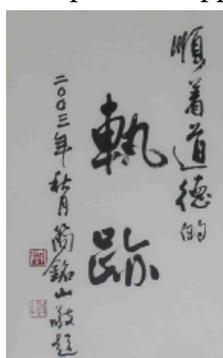 順着道德的
軌跡
二〇〇三年秋月銘山敬題